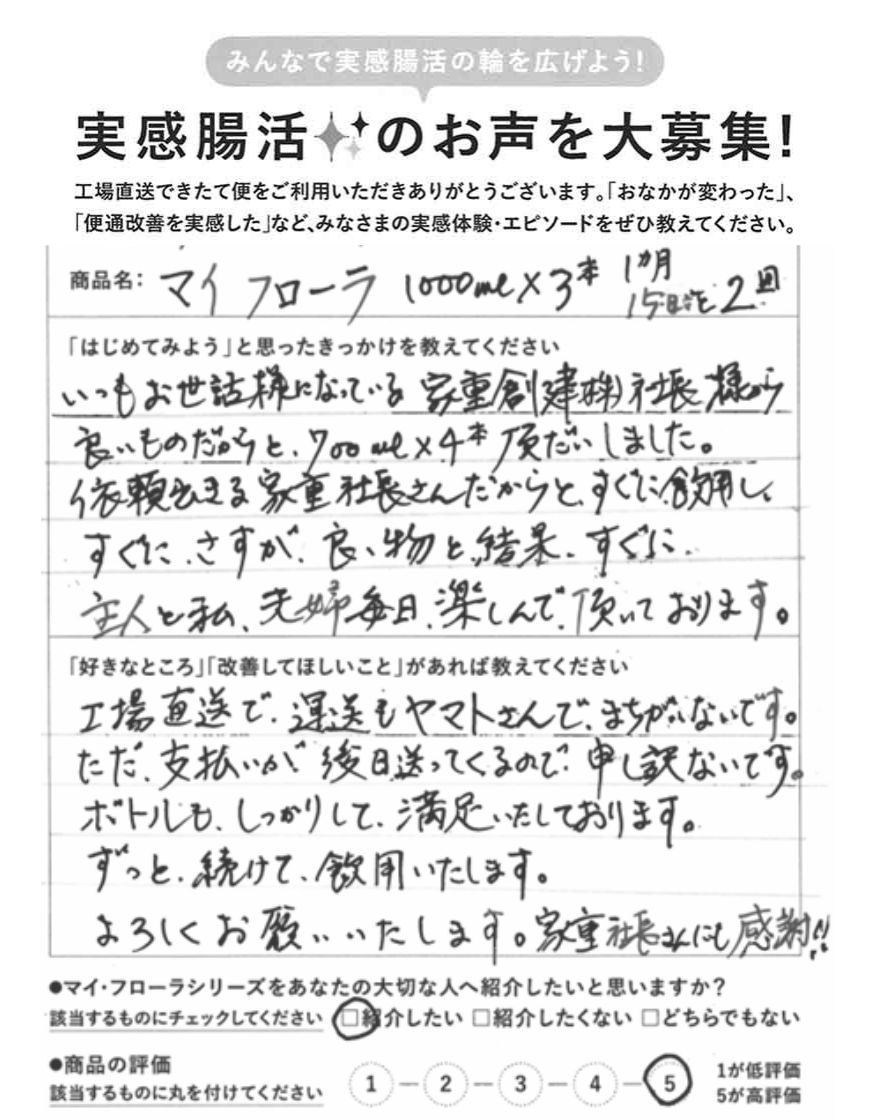 みんなで実感腸活の輪を広げよう!
実感腸活のお声を大募集!
工場直送できたて便をご利用いただきありがとうございます。「おなかが変わった」、
「便通改善を実感した」など、みなさまの実感体験・エピソードをぜひ教えてください。
商品名: マイフローラ 1000ml×3本 1カ月
15日ごと2回
「はじめてみよう」と思ったきっかけを教えてください
いつもお世話様になっている 家重創建(株)社長様から
良いものだからと、700ml×4本 頂だいしました。
依頼出きる家重社長さんだからと、すぐに飲用し、
すぐに、さすが、良い物と結果、すぐに、
主人と私、夫婦毎日、楽しんで、頂いております。
「好きなところ」「改善してほしいこと」があれば教えてください
工場直送で、運送もヤマトさんで、まちがいないです。
ただ、支払いが、後日送ってくるので、申し訳ないです。
ボトルも、しっかりして、満足いたしております。
ずっと、続けて、飲用いたします。
よろしくお願いいたします。家重社長さんにも感謝!!
●マイ・フローラシリーズをあなたの大切な人へ紹介したいと思いますか?
該当するものにチェックしてください □紹介したい □紹介したくない □どちらでもない
●商品の評価
該当するものに丸を付けてください 1 ─ 2 ─ 3 ─ 4 ─ 5
1が低評価
5が高評価